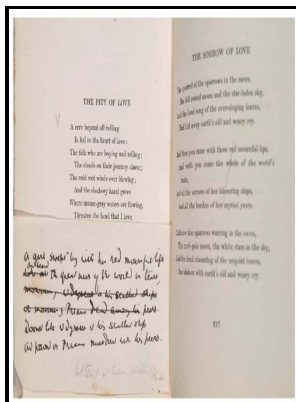 THE PITY OF LOVE
A PITY beyond all telling
Is hid in the heart of love:
The folk who are buying and selling;
The clouds on their journey above;
The cold wet winds ever blowing;
And the shadowy hazel grove
Where mouse-gray waters are flowing,
Threaten the head that I love.
a girl with her red mournful lips
the greatness of the world in tears
Odysseus & his scattered ships
Priam his peers
doomed like Odysseus & his ships
as proud as Priam murdered with his peers.
THE SORROW OF LOVE
The quarrel of the sparrows in the eaves,
The full round moon and the star-laden sky,
And the loud song of the ever-singing leaves,
Had hid away earth's old and weary cry.
And then you came with those red mournful lips,
And with you came the whole of the world's
tears,
And all the sorrows of her labouring ships,
And all the burden of her myriad years.
And now the sparrows warring in the eaves,
The curd-pale moon, the white stars in the sky,
And the loud chaunting of the unquiet leaves,
Are shaken with earth's old and weary cry.
217